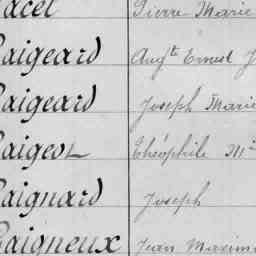 acel Pierre Marie
aigeard Aug<sup>te</sup> Ernest J
aigeard Joseph Marie
aigeol Théophile M
aignard Joseph
aigneux Jean Maxim